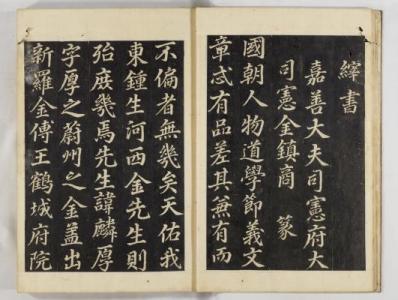 縡書
嘉善大夫司憲府大
司憲金鎮商 篆
國朝人物道學節義文
章忒有品差其兼有而
不偏者無幾矣天佑我
東鍾生河西金先生則
殆庶幾焉先生諱麟厚
字厚之蔚州之金盖出
新羅金傅王鶴城府院